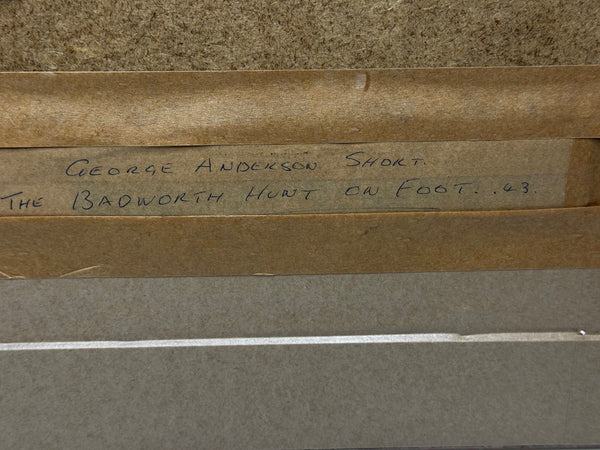 GEORGE ANDERSON SHORT.
THE BADWORTH HUNT ON FOOT. . 43.